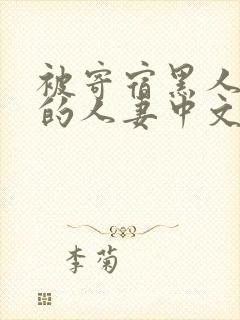 被寄宿黑人
的人妻中文
李菊